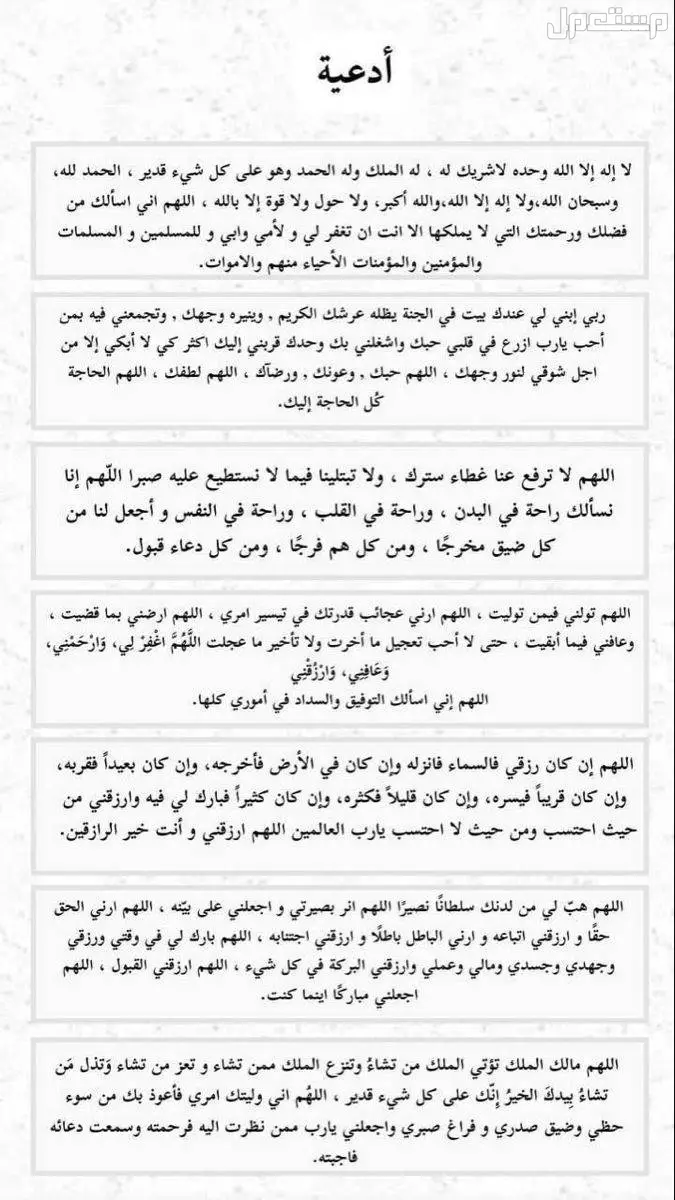 مستعمل
أدعية
لا إله إلا الله وحده لاشريك له ، له الملك وله الحمد وهو على كل شيء قدير ، الحمد لله،
وسبحان الله،ولا إله إلا الله،والله أكبر، ولا حول ولا قوة إلا بالله ، اللهم اني اسألك من
فضلك ورحمتك التي لا يملكها الا انت ان تغفر لي و لأمي وابي و للمسلمين و المسلمات
والمؤمنين والمؤمنات الأحياء منهم والاموات.
ربي إبني لي عندك بيت في الجنة يظله عرشك الكريم , وينيره وجهك , وتجمعني فيه بمن
أحب يارب ازرع في قلبي حبك واشغلني بك وحدك قربني إليك اكثر كي لا أبكي إلا من
اجل شوقي لنور وجهك ، اللهم حبك , وعونك , ورضآك ، اللهم لطفك ، اللهم الحاجة
كُل الحاجة إليك.
اللهم لا ترفع عنا غطاء سترك ، ولا تبتلينا فيما لا نستطيع عليه صبرا اللّهم إنا
نسألك راحة في البدن ، وراحة في القلب ، وراحة في النفس و أجعل لنا من
كل ضيق مخرجًا ، ومن كل هم فرجًا ، ومن كل دعاء قبول.
اللهم تولني فيمن توليت ، اللهم ارني عجائب قدرتك في تيسير امري ، اللهم ارضني بما قضيت ،
وعافني فيما أبقيت ، حتى لا أحب تعجيل ما أخرت ولا تأخير ما عجلت اللَّهُمَّ اغْفِرْ لِي، وَارْحَمْنِي،
وَعَافِنِي، وَارْزُقْنِي
اللهم إني اسألك التوفيق والسداد في أموري كلها.
اللهم إن كان رزقي فالسماء فانزله وإن كان في الأرض فأخرجه، وإن كان بعيداً فقربه،
وإن كان قريباً فيسره، وإن كان قليلاً فكثره، وإن كان كثيراً فبارك لي فيه وارزقني من
حيث احتسب ومن حيث لا احتسب يارب العالمين اللهم ارزقني و أنت خير الرازقين.
اللهم هبّ لي من لدنك سلطانًا نصيرًا اللهم انر بصيرتي و اجعلني على بيّنه ، اللهم ارني الحق
حقًا و ارزقني اتباعه و ارني الباطل باطلًا و ارزقني اجتنابه ، اللهم بارك لي في وقتي ورزقي
وجهدي وجسدي ومالي وعملي وارزقني البركة في كل شيء ، اللهم ارزقني القبول ، اللهم
اجعلني مباركًا اينما كنت.
اللهم مالك الملك تؤتي الملك من تشاءُ وتنزع الملك ممن تشاء و تعز من تشاء وَتذل مَن
تشاءُ بِيدكَ الخيرُ إنّك على كل شيء قدير ، اللهُم اني وليتك امري فأعوذ بك من سوء
حظي وضيق صدري و فراغ صبري واجعلني يارب ممن نظرت اليه فرحمته وسمعت دعائه
فاجبته.